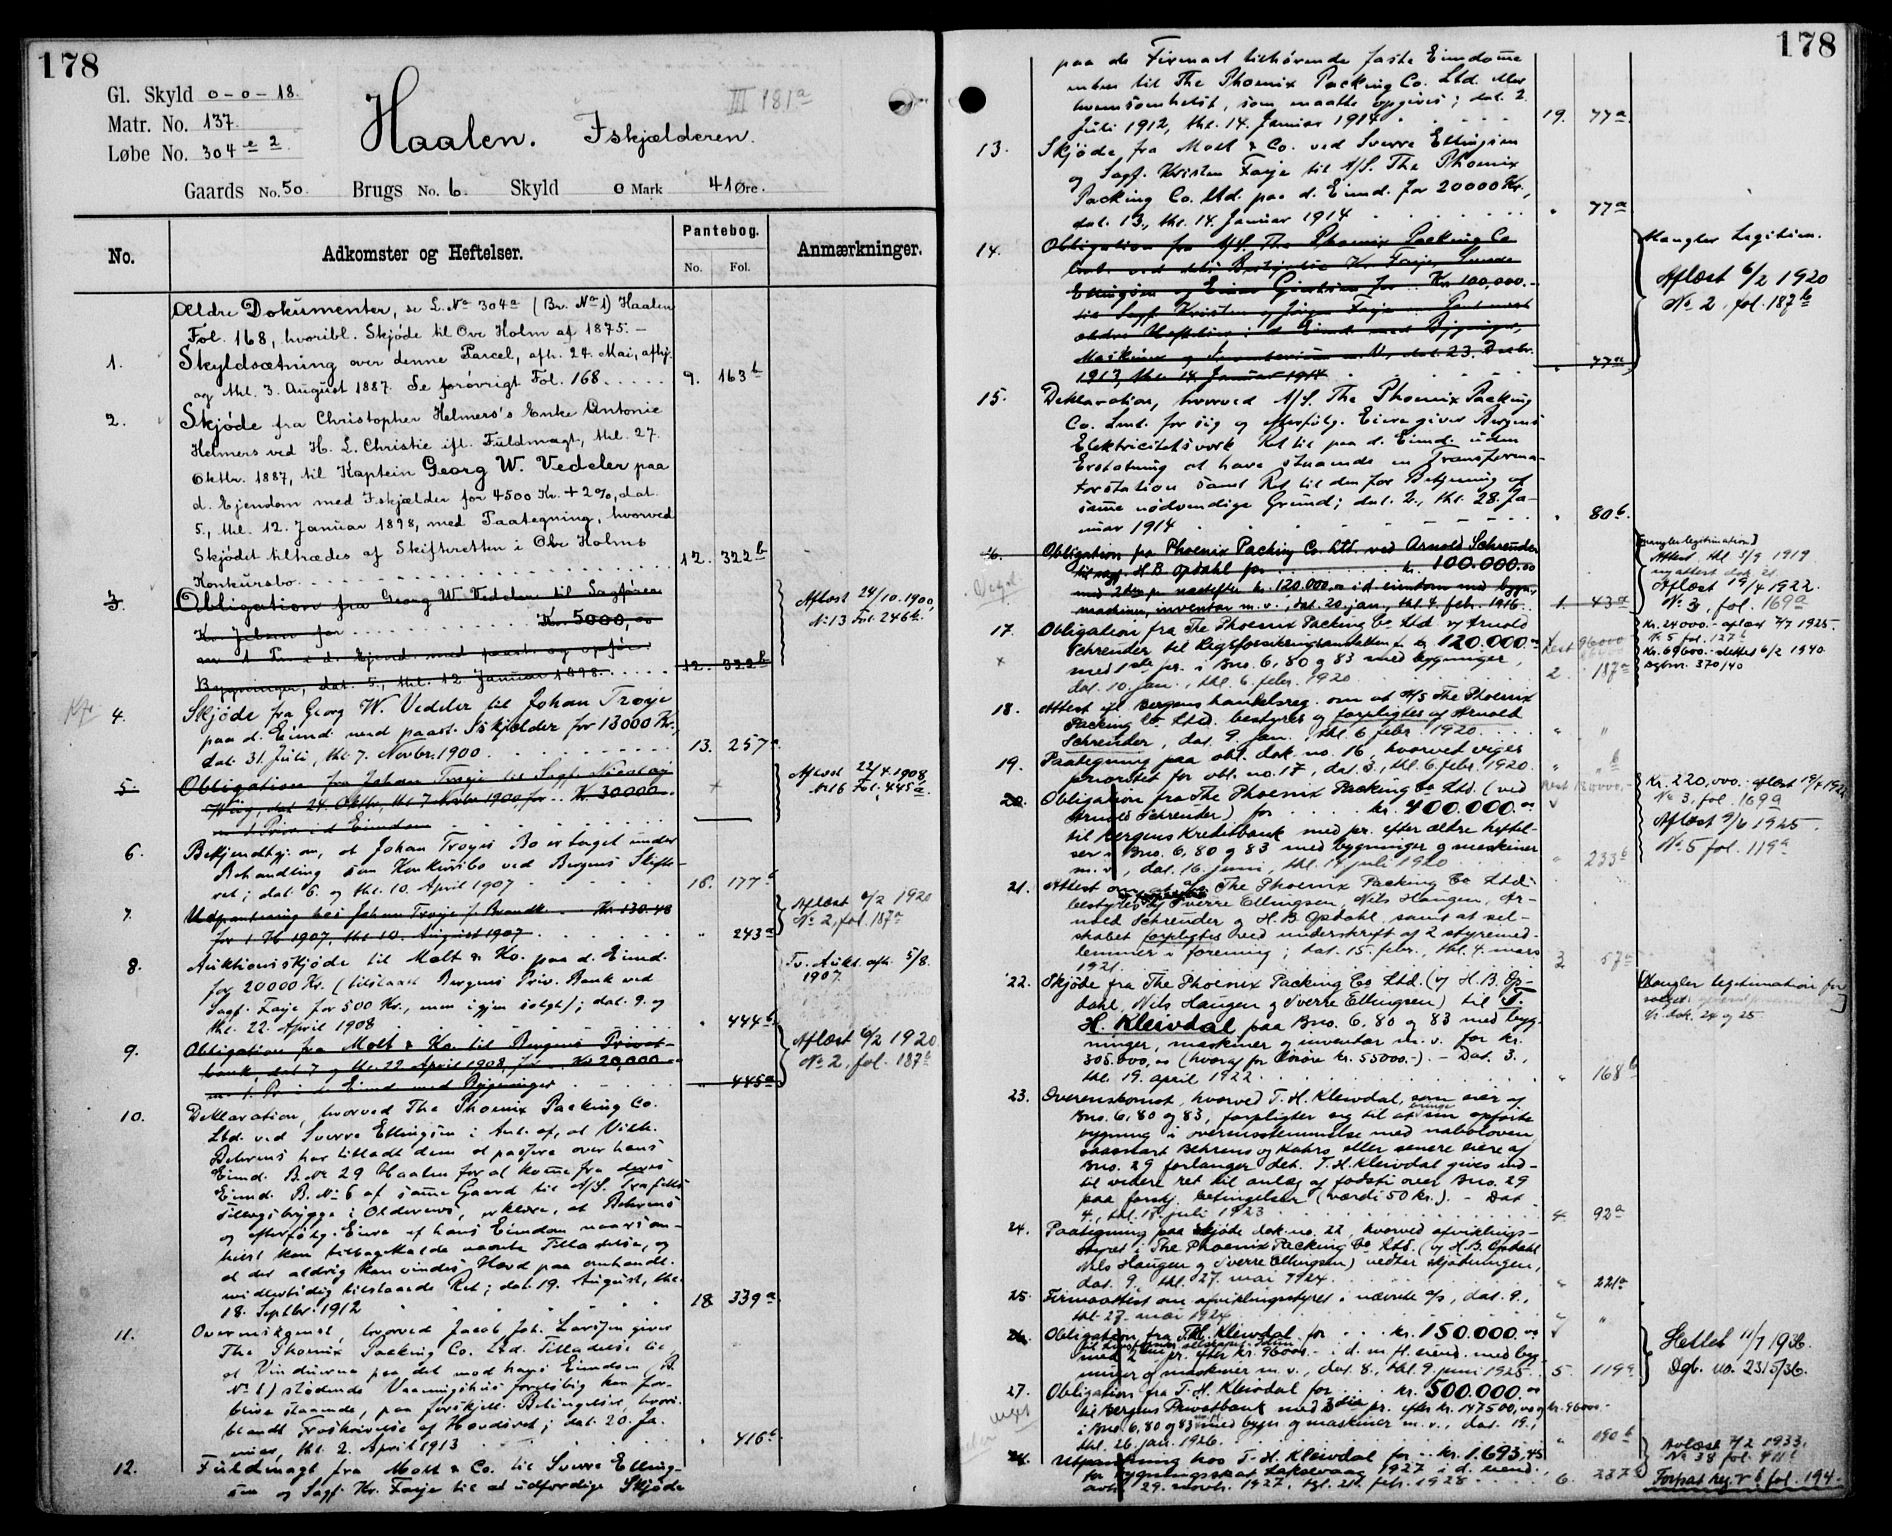 178
Gl. Skyld 0-0-18.
Matr. No. 137.
Løbe No. 304 e 2.
III 181a
Haalen. Fskjælderen.
Gaards No. 50. Brugs No. 6. Skyld 0 Mark 41 Øre.
No. Adkomster og Heftelser. Pantebog. No. Fol. Anmærkninger.
Ældre Dokumenter, se L.No 304a (Br. No 1) Haalen
Fol. 168, hvoribl. Skjøde til Ove Holm af 1875.-
1. Skyldsætning over denne Parcel, afh. 24. Mai, afhj.
og thl. 3. August 1887. Se forøvrigt Fol. 168..... 9. 163b
2. Skjøde fra Christopher Helmers's Enke Antonie
Helmers ved H. L. Christie ifl. Fuldmagt, thl. 27.
Oktbr. 1887, til Kaptein Georg W. Vedeler paa
d. Ejendom med Fskjælder for 4500 Kr. + 2%, dat.
5., thl. 12. Januar 1898, med Paategning, hvorved
Skjødet tiltrædes af Skifteretten i Ove Holms
Konkursbo. 12. 322b
3. Obligation fra Georg W. Vedeler til Sagfører
Kr. Jebsen for Kr. 5000,00
m 1 Pr. i d. Ejend. med paast. og opfør.
Bygninger, dat. 5., thl. 12 Januar 1898. 12. 322b
Aflæst 24/10.1900,
No 13 Fol. 246b.
4. Skjøde fra Georg W. Vedeler til Johan Troye
paa d. Eiend. med paast. Iskjælder for 13000 Kr.,
dat. 31. Juli, thl. 7. Novbr. 1900 13. 257a
5. Obligation fra Johan Troye til Sagf. Nicolai
Wiig, dat. 24. Oktbr., thl 7 Novbr 1900 for Kr. 30000.
m 1 Prior. i d. Eiendom
Aflæst 22/4.1908
No 16 Fol. 445a.
6. Bekjendtgj. om, at Johan Troyes Bo er taget under
Behandling som Konkursbo ved Bergens Skifte-
ret; dat. 6. og thl. 10. April 1907 16. 177b
7. Udpantning hos Johan Troye f. Brandk. Kr. 130.48
for 1 H 1907, thl. 10. August 1907 " 243a
Aflæst 6/2 1920
No 2, fol. 187a
8. Auktionsskjøde til Molt & Ko. paa d. Eiend.
for 20000 Kr. (tilslaaet Bergens Priv. Bank ved
Sagf. Faye for 500 Kr., men igjen solgt); dat. 9. og
thl. 22. April 1908 " 444b
Tv. Aukt. afh. 5/8
1907.
9. Obligation fra Molt & Ko. til Bergens Privat-
bank, dat 7 og thl. 22 April 1908, for Kr 20,000
m 1. Pr i d. Eiend med Bygninger " 445a
Aflæst 6/2 1920
No 2, fol. 187b
10. Deklaration, hvorved The Phoenix Packing Co.
Ltd. ved Sverre Ellingsen i Anl. af, at Vilh.
Behrens har tilladt dem at passere over hans
Eiend. B. No 29 Haalen for at komme fra deres
Eiend. B. No 6 af samme Gaard til A/S. Trafikk.
Anlægsbrygge i Olderenes, erklærer, at Behrens
og efterfølg. Eiere af hans Eiendom naarsom-
helst kan tilbagekalde nævnte Tilladelse, og
at der aldrig kan vindes Hævd paa omhandl.
midlertidig tilstaaede Ret; dat. 19. August, thl.
18. Septbr. 1912 18 339a
11. Overenskomst, hvorved Jacob Joh. Larsen giver
The Phoenix Packing Co. Ltd. Tilladelse til
at Vinduerne paa det mod hans Eiendom (B.
No 1) stødende Vaaningshus foreløbig kan for-
blive staaende, paa forskjell. Betingelser, hvori-
blandt Fraskrivelse af Hævdsret; dat. 20. Ja-
nuar, thl. 2. April 1913 " 416b
12. Fuldmagt fra Molt & Co. til Sverre Elling-
sen og Sagf. Kr. Faye til at udfærdige Skjøde
178
paa de Firmaet tilhørende faste Eiendomme
enten til The Phoenix Packing Co. Ltd. eller
hvemsomhelst, som maatte opgives; dat. 2.
Juli 1912, thl. 14. Januar 1914 19. 77a
13. Skjøde fra Molt & Co. ved Sverre Ellingsen
og Sagf. Kristen Faye til A/S. The Phoenix
Packing Co. Ltd. paa d. Eiend. for 20000 Kr.,
dat. 13., thl. 14. Januar 1914 " 77a
14. Obligation fra A/S. The Phoenix Packing Co
Ltd. ved dets Bestyrelse Kr. Faye, Sverre
Ellingsen og Einar Giertsen for Kr. 100,000.-
til Sagf. Kristen og Jørgen Faye
ældre Heftelser i d. Eiend med Bygninger,
Maskiner og Inventarium m.V., dat. 23. Decbr.
1913, thl. 14. Januar 1914 " 77a
Mangler Legitim.
Aflæst 6/2 1920
No 2, fol. 187b
15. Deklaration, hvorved A/S. The Phoenix Packing
Co. Lmd. for sig og efterfølg. Eiere giver Bergens
Elektricitetsverk Ret til paa d. Eiend. uden
Erstatning at have staaende en Transforma-
torstation samt Ret til den for Betjening af
samme nødvendige Grund; dat. 2., thl. 28. Ja-
nuar 1914 " 80b.
16. Obligation fra Phoenix Packing Co. Ltd ved Arnold Schreuder
til sagf. H. B. Opdahl for kr. 100.000.00
med 2den pr. næstefter kr. 120.000.00 i d. eiendom med bygn.,
maskiner, inventar m.v., dat. 20. jan., thl. 4. febr. 1916. 1. 43a
Mangler legitimation
Attest thl 5/9 1919
ny attest dok. 21.
Aflæst 19/4 1922.
No 3, fol. 169a
17. Obligation fra The Phoenix Packing Co Ltd v/ Arnold
Schreuder til Rigsforsikringsanstalten f. kr. 120.000.00
med 1ste pr. i Bno. 6, 80 og 83 med bygninger,
dat. 10. jan., thl. 6. febr. 1920 2. 187a
Rest 96000
Kr. 24000.- aflæst 7/7 1925.
No 5 fol. 127b
Kr. 69600.- slettet 6/2 1940
Dagbnr. 370/40
18. Attest ifl. Bergens handelsreg. om at A/S The Phoenix
Packing Co Ltd. bestyres og forpligtes af Arnold
Schreuder, dat. 9. jan., thl. 6 febr. 1920. " "
19. Paategning paa obl. dok. no. 16, hvorved viges
prioritet for obl. no. 17, dat. 3., thl. 6. febr. 1920. " " b
20. Obligation fra The Phoenix Packing Co Ltd. (ved
Arnold Schreuder) for kr. 400.000.00
til Bergens Kreditbank med pr. efter ældre heftel-
ser i Bno. 6, 80 og 83 med bygninger og maskiner
m. v., dat. 16. juni, thl. 17 juli 1920 " 233b
Rest 180000.-
Kr. 220,000.- aflæst 19/4 1922
No 3, fol. 169a
Aflæst 9/6 1925.
No 5 fol. 119a
21. Attest om, at a/s The Phoenix Packing Co Ltd.
bestyres af Sverre Ellingsen, Nils Haugen, Ar-
nold Schreuder og H. B. Opdahl, samt at sel-
skabet forpligtes ved underskrift af 2 styremed-
lemmer i forening; dat. 15. febr., thl. 4. mars
1921. 3. 57a
22. Skjøde fra The Phoenix Packing Co Ltd. (v/ H. B. Op-
dahl, Nils Haugen og Sverre Ellingsen) til T.
H. Kleivdal paa Bno. 6, 80 og 83 med byg-
ninger, maskiner og inventar m. v. for kr.
305.000,00 (hvoraf for løsøre kr. 55000.-). - Dat. 3.,
thl. 19. april 1922. " 168b
Mangler legitimation for
sælger
cfr. dok. 24 og 25
23. Overenskomst, hvorved T. H. Kleivdal, som eier af
Bno. 6, 80 og 83, forpligter sig til at bringe sin opførte
bygning i overensstemmelse med naboloven
saasnart Behrens og Kahrs eller senere eiere af
Bno. 29 forlanger det. T. H. Kleivdal gives ind-
til videre ret til anlæg af fodsti over Bno. 29
paa forskj. betingelser (værdi 50 kr.). - Dat.
4., thl. 18. juli 1923 4. 92a
24. Paategning paa skjøde dok. no. 22, hvorved afviklings-
styret i The Phoenix Packing Co Ltd. (v/ H. B. Opdahl
Nils Haugen og Sverre Ellingsen) vedtar skjøtningen,
dat. 9., thl. 27. mai 1924. " 221a
25. Firmaattest om afviklingsstyret i nævnte a/s, dat. 9.,
thl. 27. mai 1924. " "
26. Obligation fra T.H. Kleivdal for kr. 150.000.00
med 2den pr. efter kr. 96000.- i d. m. fl. eiend. med byg-
ninger og maskiner m. v., dat. 8., thl. 9. juni 1925 5. 119a
Slettet 11/7 1936.
Dgb. no. 2315/36.
27. Obligation fra T. H. Kleivdal for kr. 500.000.00
til Bergens Privatbank med 3die pr. efter kr. 147500,00 og kr. 96000.-
i Bno. 6, 80 og 83 med bygn. og maskiner m. v., dat. 19.,
thl. 26. jan. 1926. " 190b
28. Utpantning hos T. H. Kleivdal for kr. 1.693,45
for bygningsskat Laksevaag 1927 i d. eiend.,
avh. 29. novbr. 1927, tgl. 21. febr. 1928 6. 237b
Avlæst 7/2 1933.
No 38 fol. 411b
Forpat reg. V b fol. 194.